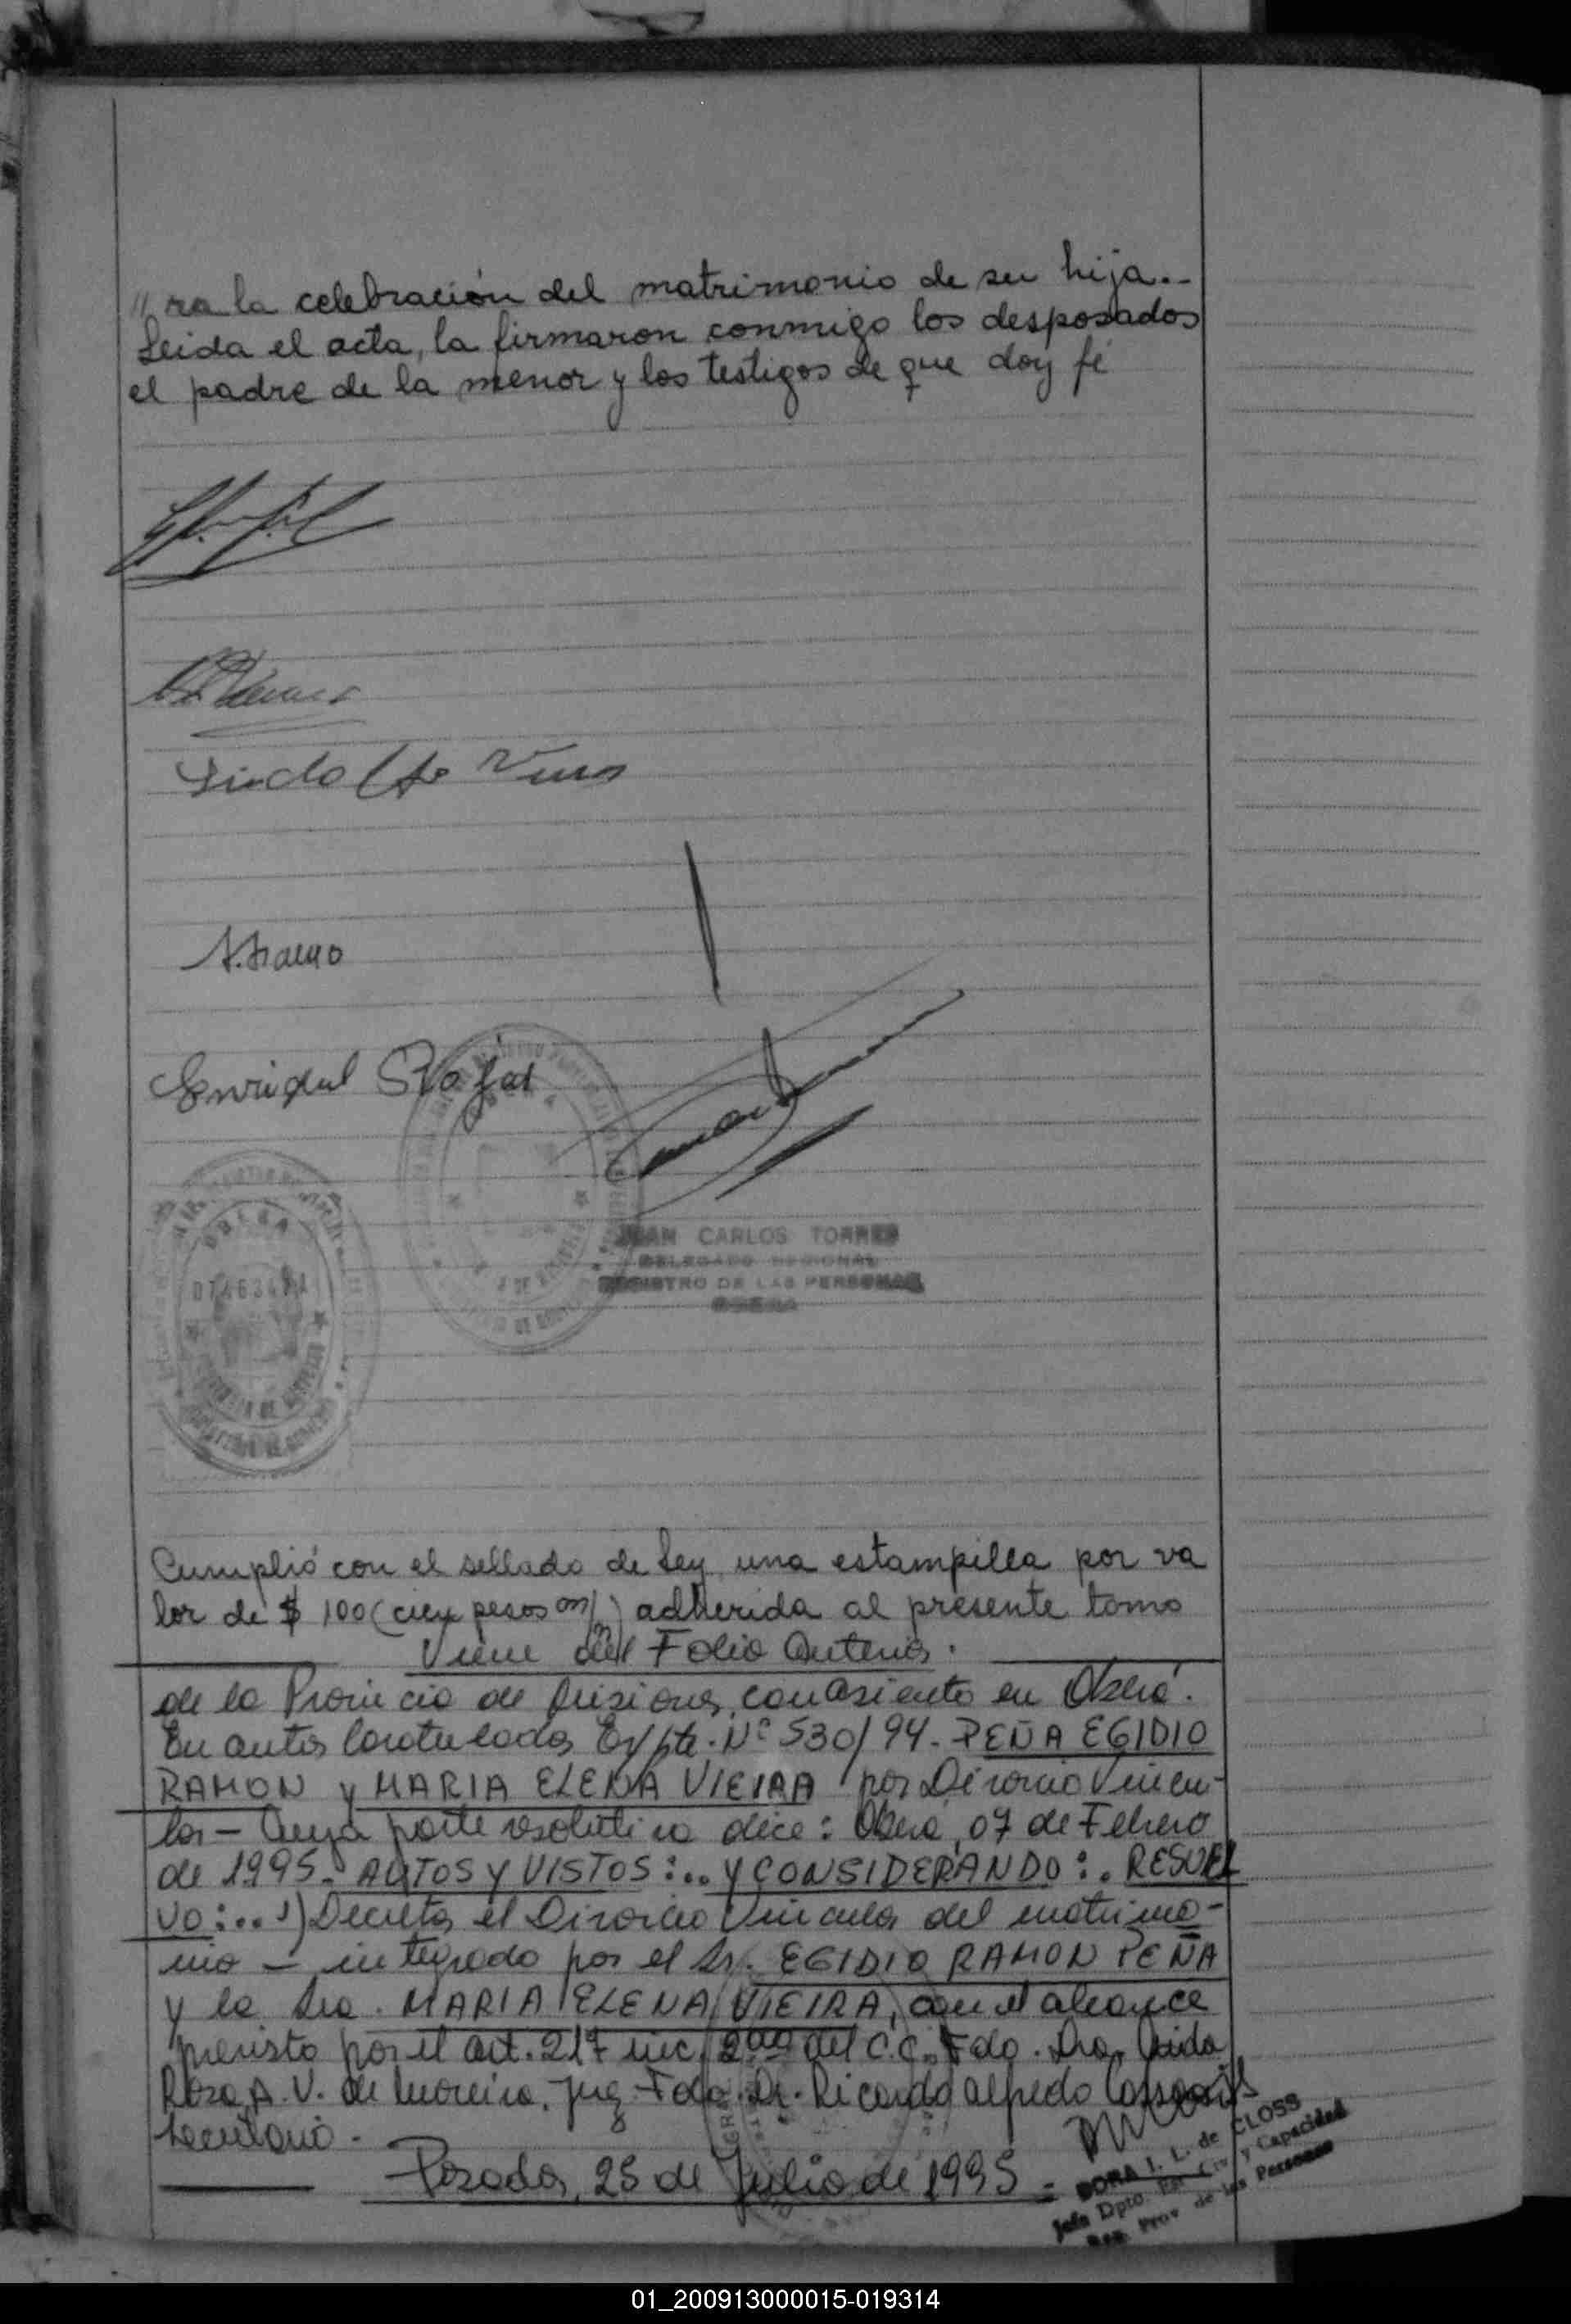 "ra la celebración del matrimonio de su hija..
Leida el acta, la firmaron conmigo los desposados
el padre de la menor y los testigos de que doy fé
Enrique Rojas
OBERA
JUAN CARLOS TORRES
DELEGADO REGIONAL
REGISTRO DE LAS PERSONAS
OBERA
Cumplió con el sellado de Ley, una estampilla por va
lor de $ 100 (cien pesos m/n) adherida al presente tomo
Viene del Folio Anterior.
de la Provincia de Misiones, con asiento en Oberá.
En autos Caratulados Expte. Nº 530/94 - PEÑA EGIDIO
RAMON y MARIA ELENA VIEIRA por Divorcio Vincu-
lar - Cuya parte resolutiva dice: Oberá, 07 de Febrero
de 1995. AUTOS Y VISTOS:.. Y CONSIDERANDO:. RESUEL
VO:.. 1) Decretar el Divorcio Vincular del matrimo-
nio - integrado por el Sr. EGIDIO RAMON PEÑA
y la Sra. MARIA ELENA VIEIRA, con el alcance
previsto por el art. 217 inc. 2do del C.C. Fdo. Dra.
Rosa A. V. de Moreira. Juez. Fdo. Dr. Ricardo Alfredo
Secretario.
Posadas, 25 de Julio de 1995 =
DORA I. L. de CLOSS
Jefe Dpto. Est. Civ. y Capacidad
Reg. Prov. de las Personas
01_200913000015-019314